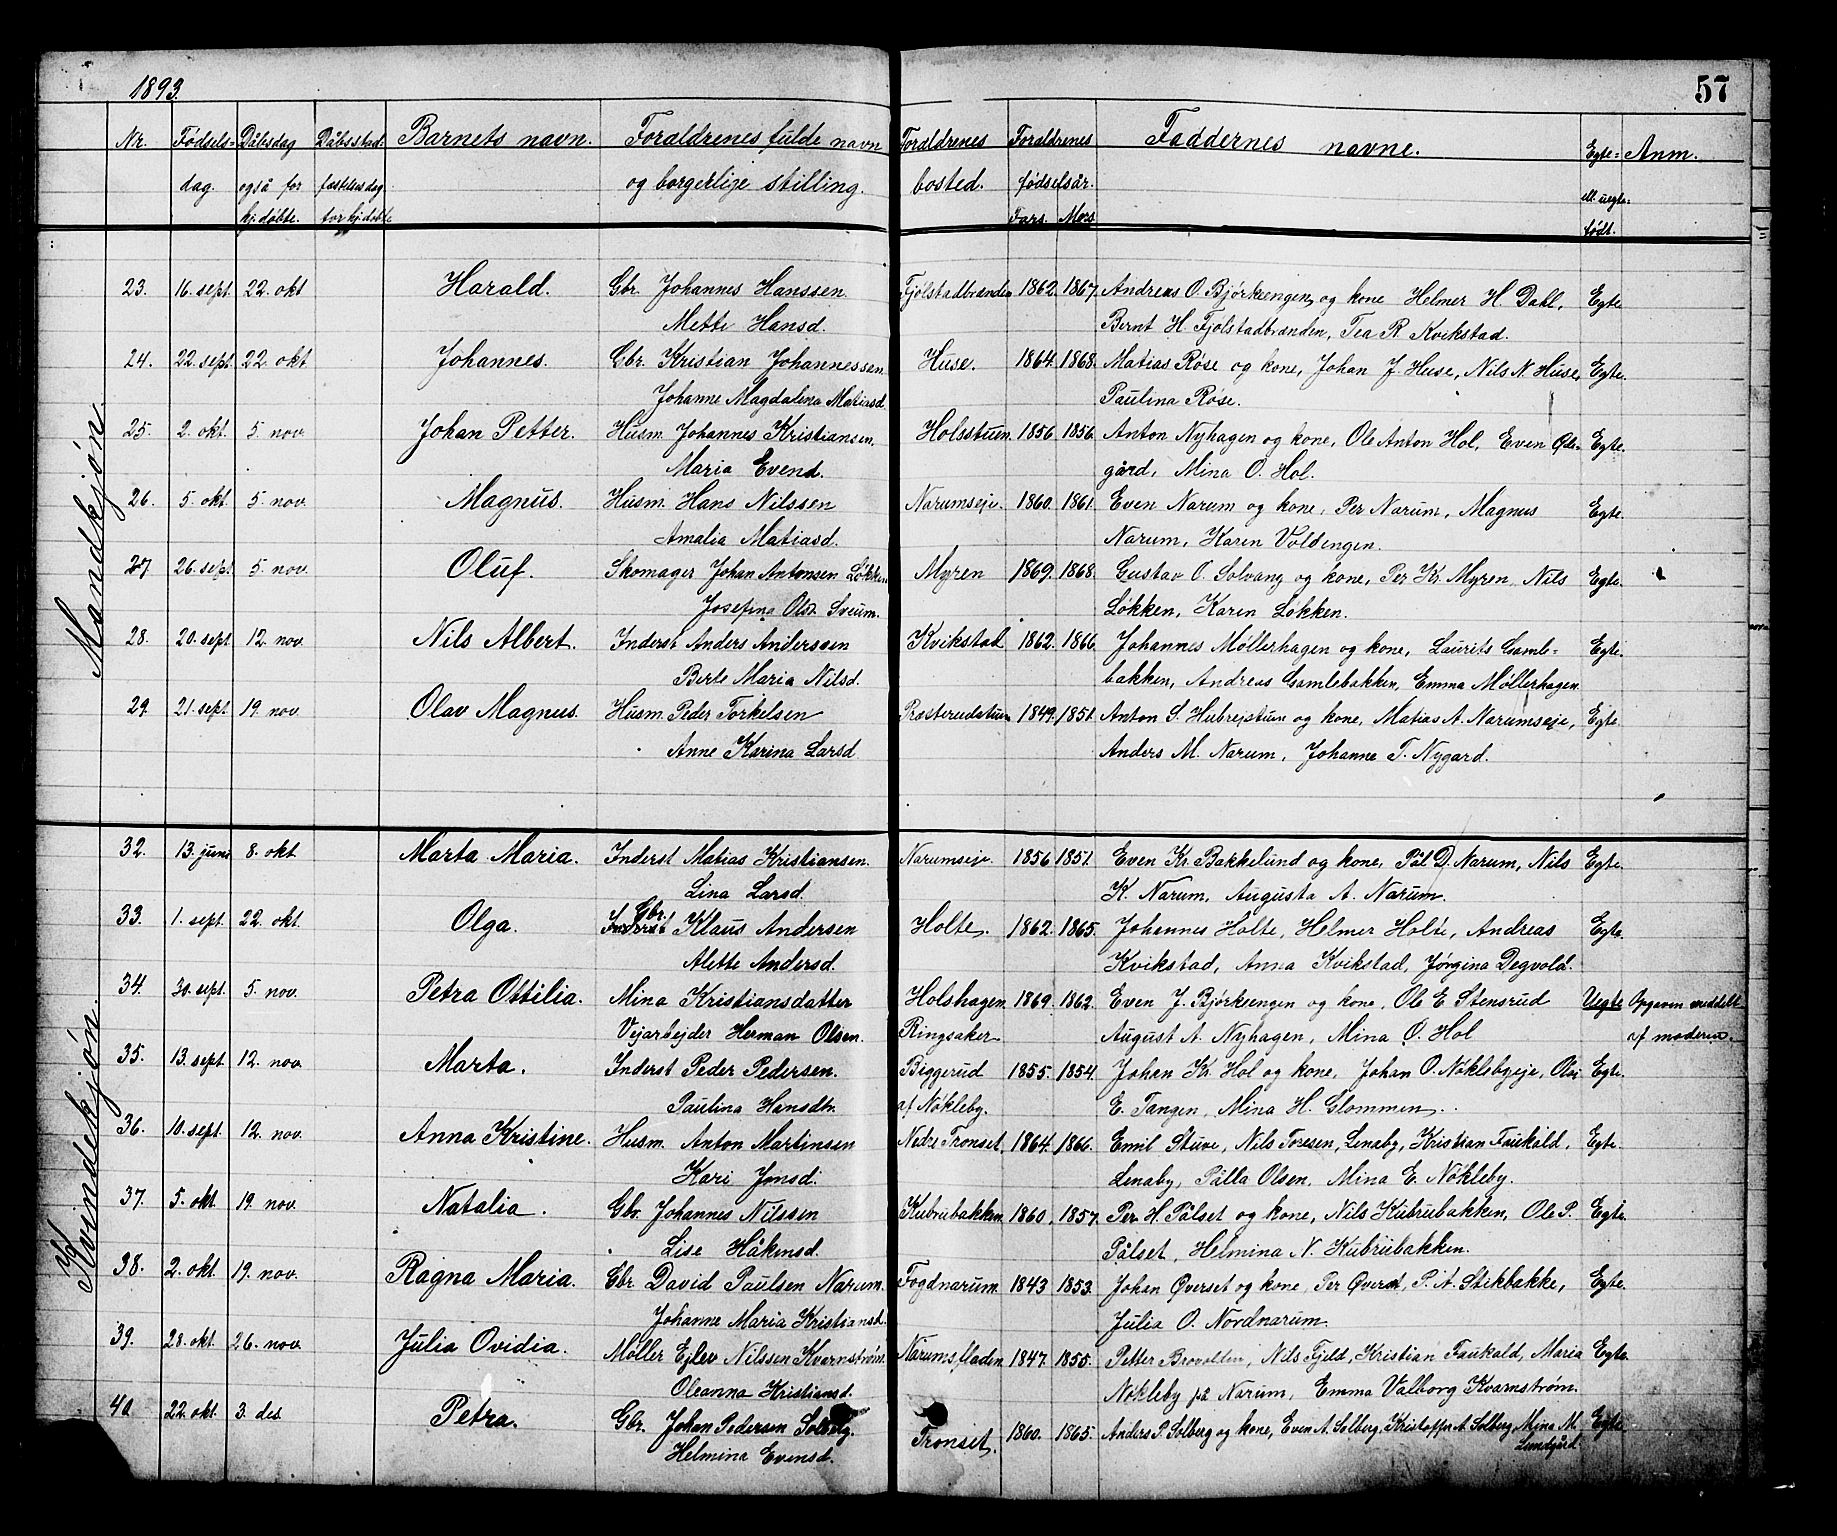 1893.
57
Nr. Fødsels= Dåbsdag Dåbsstad: Barnets navn. Foraldrenes fulde navn Foraldrenes Foraldrenes Faddernes navne. Egte= Anm.
dag. også for fæstelsesdag og borgerlige stilling. bosted. fødselsår. ell. uegte=
hj. døbte. for hj. døbte Fars. Mors. født.
Mandkjøn.
23. 16. sept. 22. okt Harald. Gbr. Johannes Hanssen. Fjølstadbrænden 1862. 1867. Andreas O. Bjørkeengen og kone Helmer H. Dahl, Egte
Mette Hansd. Bernt H. Fjølstadbrænden, Tea R Kvikstad.
24. 22. sept. 22. okt Johannes. Gbr. Kristian Johannessen Huse. 1864. 1868. Matias Røse og kone, Johan J. Huse, Nils N. Huse, Egte.
Johanne Magdalena Matiasd. Paulina Røse.
25. 2. okt. 5. nov. Johan Petter. Husm. Johannes Kristiansen. Holsstuen 1856 1856. Anton Nyhagen og kone, Ole Anton Hol, Even Øde= Egte.
Maria Evend. gård, Mina O. Hol.
26. 5. okt. 5. nov. Magnus. Husm. Hans Nilssen Narumseje. 1860. 1861. Even Narum og kone, Per Narum, Magnus Egte.
Amalia Matiasd. Narum, Karen Voldengen.
27. 26. sept. 5. nov. Oluf. Skomager Johan Antonsen Løkken Myren 1869. 1868. Gustav O. Solvang og kone, Per Kr. Myren, Nils Egte.
Josefina Olsd. Sveum. Løkken, Karen Løkken.
28. 20. sept. 12. nov. Nils Albert. Inderst Anders Anderssen Kvikstad 1862. 1866 Johannes Møllerhagen og kone, Laurits Gamle= Egte.
Berte Maria Nilsd. bakken, Andreas Gamlebakken, Emma Møllerhagen
29. 21. sept. 19. nov. Olav Magnus. Husm. Peder Torkelsen Præsterudstuen 1849. 1851. Anton S. Hubrejstuen og kone, Matias A. Narumseje, Egte.
Anne Karina Larsd. Anders M. Narum, Johanne T. Nygard.
Kvindekjøn.
32. 13. juni 8. okt. Marta Maria. Inderst Matias Kristiansen. Narumseje. 1856 1851. Even Kr. Bakkelund og kone, Pål D. Narum, Nils Egte.
Lina Larsd. K. Narum, Augusta A. Narum.
33. 1. sept. 22. okt. Olga. Inderst Gbr. Klaus Andersen Holte. 1862. 1865. Johannes Holte, Helmer Holte, Andreas Egte.
Alette Andersd. Kvikstad, Anna Kvikstad, Jørgina Degvold.
34. 30. sept. 5. nov. Petra Ottilia. Mina Kristiansdatter Holshagen. 1869. 1862. Even J. Bjørkeengen og kone, Ole E Stensrud Uegte Opgaven meddelt
Vejarbejder Herman Olsen. Ringsaker August A. Nyhagen, Mina O. Hol af moderen.
35. 13. sept. 12. nov. Marta. Inderst Peder Pedersen. Biggerud 1855. 1854. Johan Kr. Hol og kone, Johan O. Nøklebyeje, Egte.
Paulina Hansdtr. af Nøkleby. E. Tangen, Mina H. Glommen.
36. 10. sept. 12. nov. Anna Kristine. Husm. Anton Martinsen Nedre Tronset. 1864. 1866. Emil Stuve, Nils Toresen, Lenaby, Kristian Faukald, Egte.
Kari Jonsd. Lenaby, Pålla Olsen, Mina E. Nøkleby.
37. 5. okt. 19. nov. Natalia. Gbr. Johannes Nilssen Kubrubakken. 1860. 1857. Per H. Pålset og kone, Nils Kubrubakken, Ole P. Egte.
Lise Håkensd. Pålset, Helmina N. Kubrubakken.
38. 2. okt. 19. nov. Ragna Maria. Gbr. David Paulsen Narum. Fogdnarum. 1843 1853. Johan Øverset og kone, Per Øverset, P. A. Stikbakke, Egte.
Johanne Maria Kristiansd. Julia O. Nordnarum.
39. 28. okt. 26. nov. Julia Ovidia. Møller Ejlev Nilssen Kvarnstrøm. Narumsfladen 1847. 1855. Petter Brovolten, Nils Fjeld, Kristian Faukald, Maria Egte.
Oleanna Kristiansd. Nøkleby på Narum, Emma Valborg Kvarnstrøm.
40 22. okt. 3. des. Petra. Gbr. Johan Pedersen Solberg. Tronset. 1860. 1865. Anders P. Solberg og kone, Even A. Solberg, Kristoffer A. Solberg, Mina M. Egte.
Helmina Evensd. Lundgård.